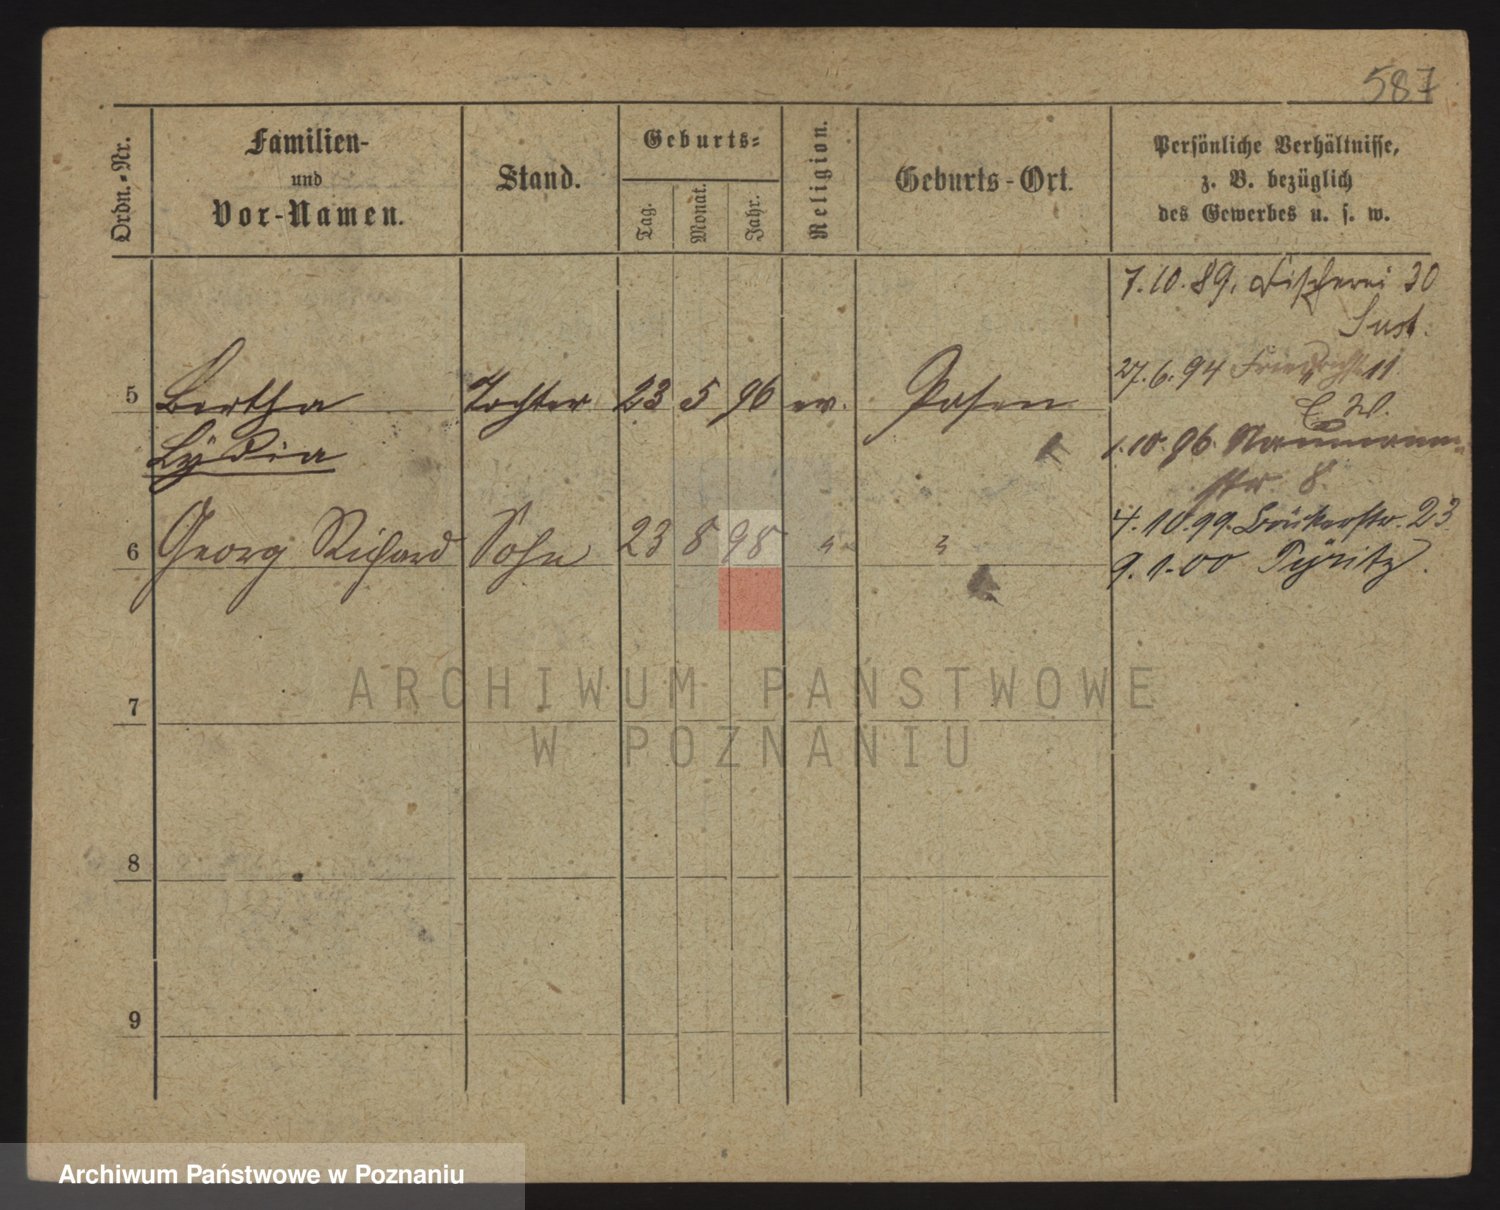 587
Ordn.-Nr.
Familien-
und
Vor-Namen.
Stand.
Geburts-
Tag.
Monat.
Jahr.
Religion.
Geburts-Ort.
Persönliche Verhältnisse,
z. B. bezüglich
des Gewerbes u. s. w.
7.10.89. Fischerei 30
27.6.94 Friedrichstr. 11
5 Bertha Tochter 23 5 96 ev. Posen
Lydia
1.10.96. Naumann-
str. 8.
6 Georg Richard Sohn 23 8 98 " "
4.10.99. Bäckerstr. 23
9.1.00 Pyritz.
7
8
9
ARCHIWUM PAŃSTWOWE
W POZNANIU
Archiwum Państwowe w Poznaniu